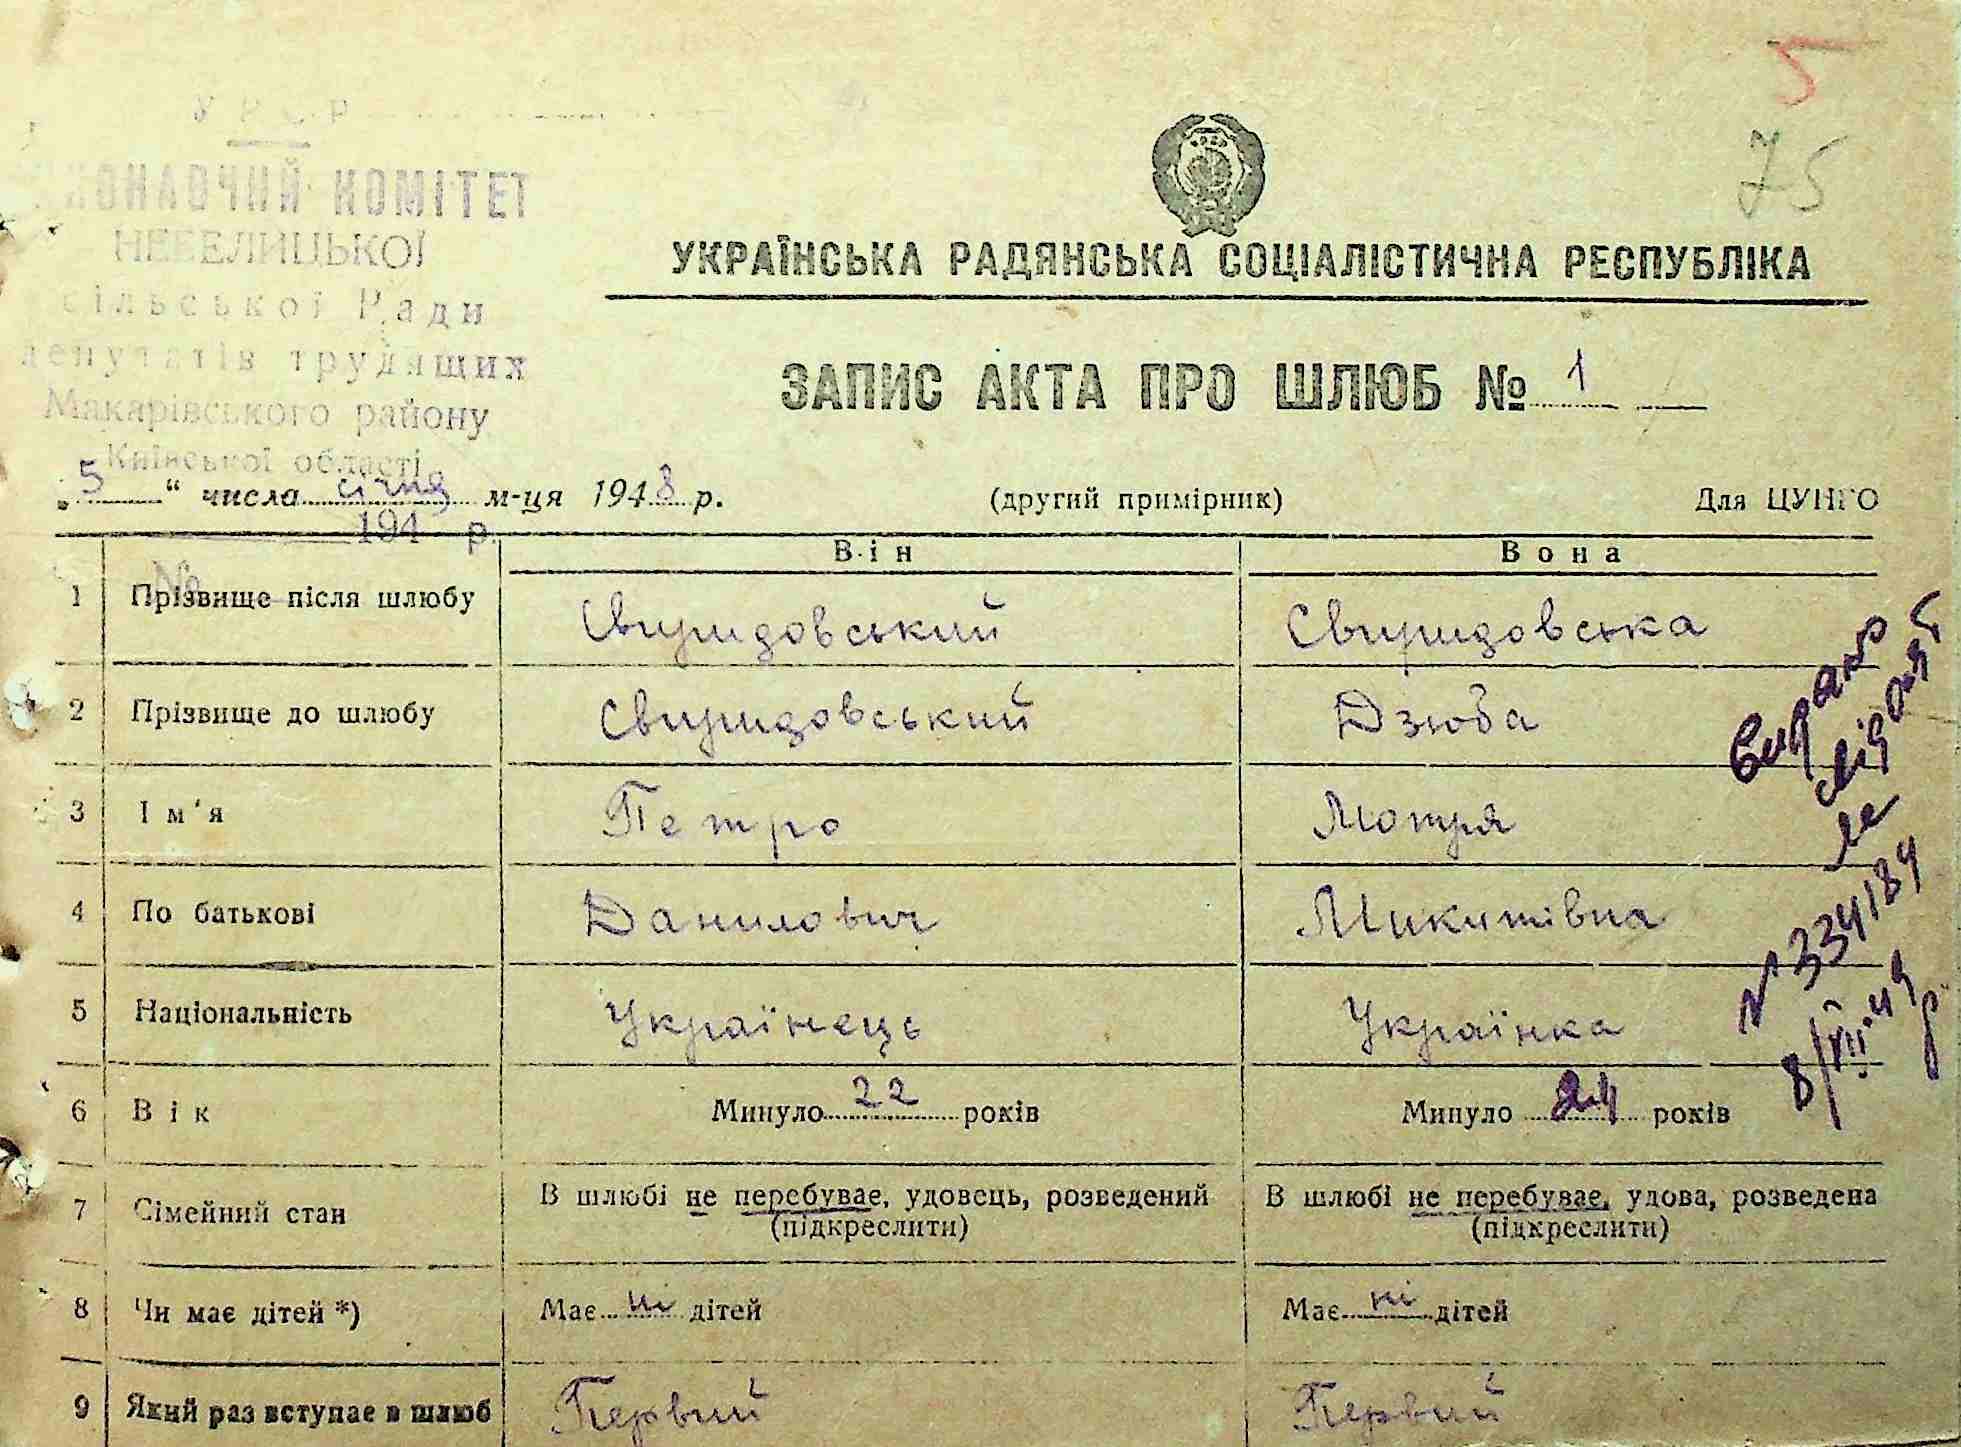 5
75
У Р С Р
КОМІТЕТ
НЕБЕЛИЦЬКОЇ
сільської Ради
депутатів трудящих
Макарівського району
Київської області
194 р.
№
УКРАЇНСЬКА РАДЯНСЬКА СОЦІАЛІСТИЧНА РЕСПУБЛІКА
ЗАПИС АКТА ПРО ШЛЮБ № 1
„5“ числа січня м-ця 1948 р. (другий примірник) Для ЦУНГО
Він Вона
1 Прізвище після шлюбу Свиридовський Свиридовська
2 Прізвище до шлюбу Свиридовський Дзюба
3 Ім'я Петро Мотря
4 По батькові Данилович Микитівна
5 Національність Українець Українка
6 Вік Минуло 22 років Минуло 24 років
7 Сімейний стан В шлюбі не перебуває, удовець, розведений В шлюбі не перебуває, удова, розведена
(підкреслити) (підкреслити)
8 Чи має дітей *) Має ні дітей Має ні дітей
9 Який раз вступає в шлюб Первий Первий
Видано
N 334184
8/VII.49
р.